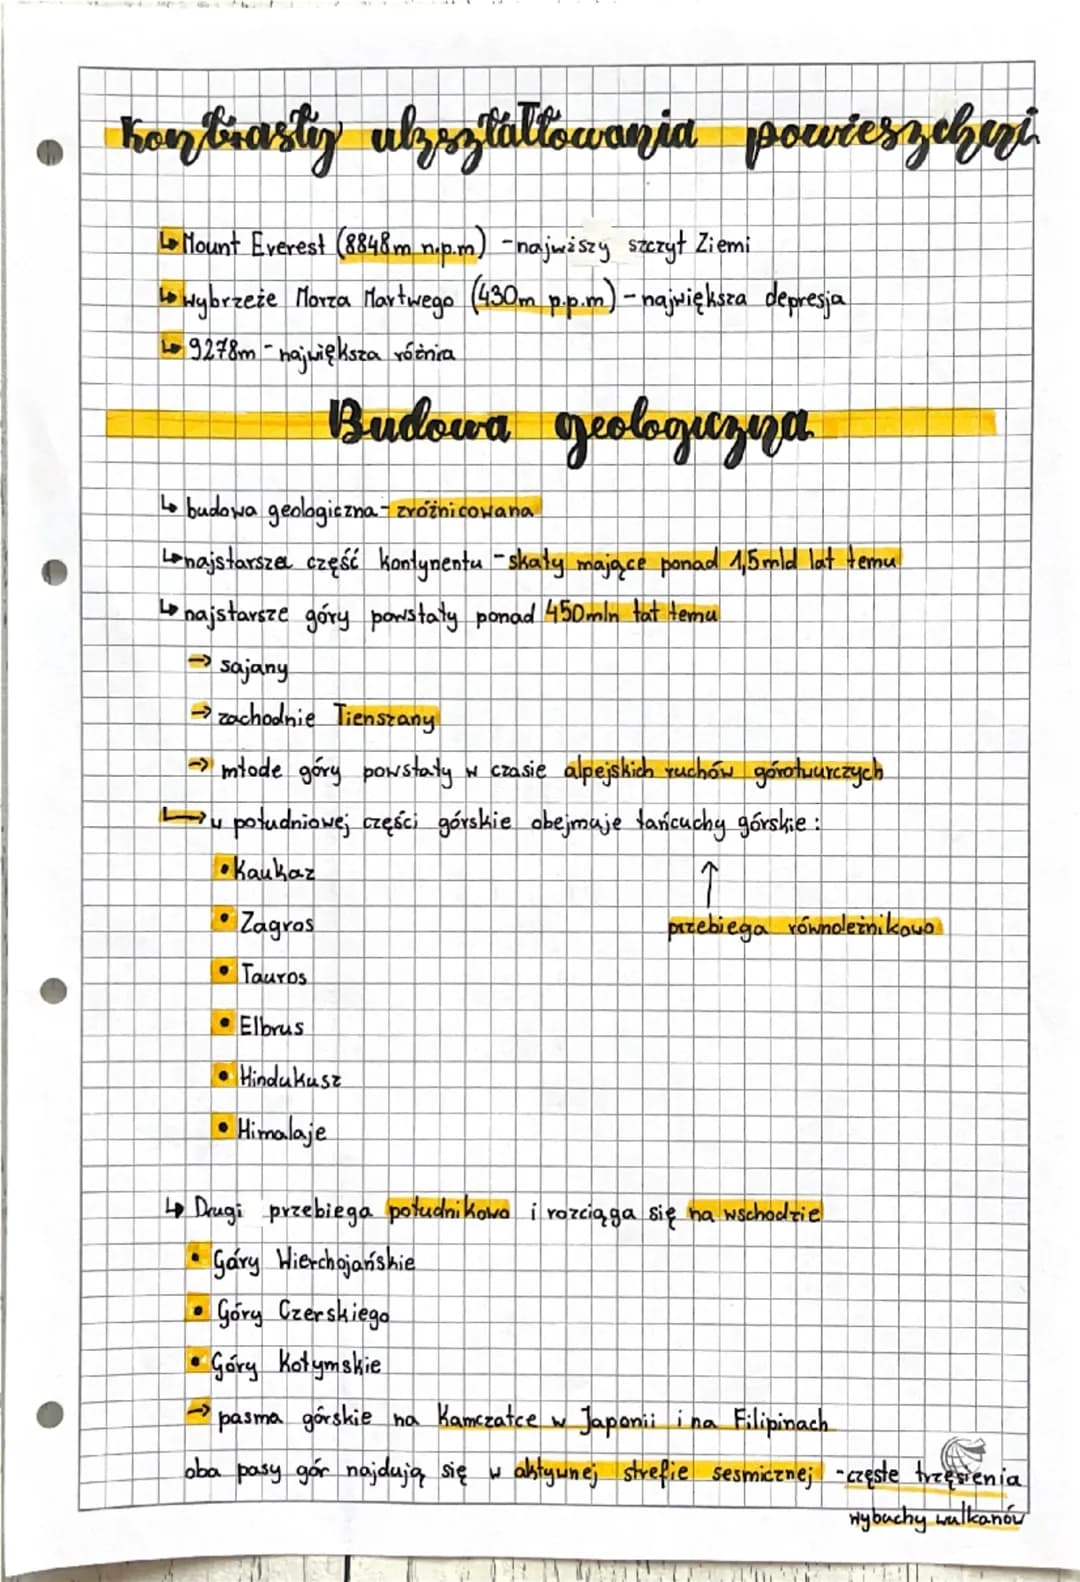 Kontrasty ukształtowania powierzchni
↳ Mount Everest (8848m n.p.m) - najwiższy szczyt Ziemi
↳ wybrzeże Morza Martwego (430m p.p.m) - największa depresja
↳ 9278m - największa różnia
Budowa geologiczna
↳ budowa geologiczna - zróżnicowana
↳ najstarsza część kontynentu - skały mające ponad 1,5 mld lat temu
↳ najstarsze góry powstały ponad 450mln lat temu
→ sajany
→ zachodnie Tienszany
→ młode góry powstały w czasie alpejskich ruchów górotwurczych
↳ w południowej części górskie obejmuje łańcuchy górskie :
• Kaukaz
↑
• Zagros
przebiega równoleżnikowo
• Tauros
• Elbrus
• Hindukusz
• Himalaje
↳ Drugi przebiega południkowo i rozciąga się na wschodzie
• Góry Wierchojańskie
• Góry Czerskiego
• Góry Kołymskie
→ pasma górskie na Kamczatce w Japonii i na Filipinach
oba pasy gór najdują się w aktywnej strefie sesmicznej - częste trzęsienia
wybuchy wulkanów